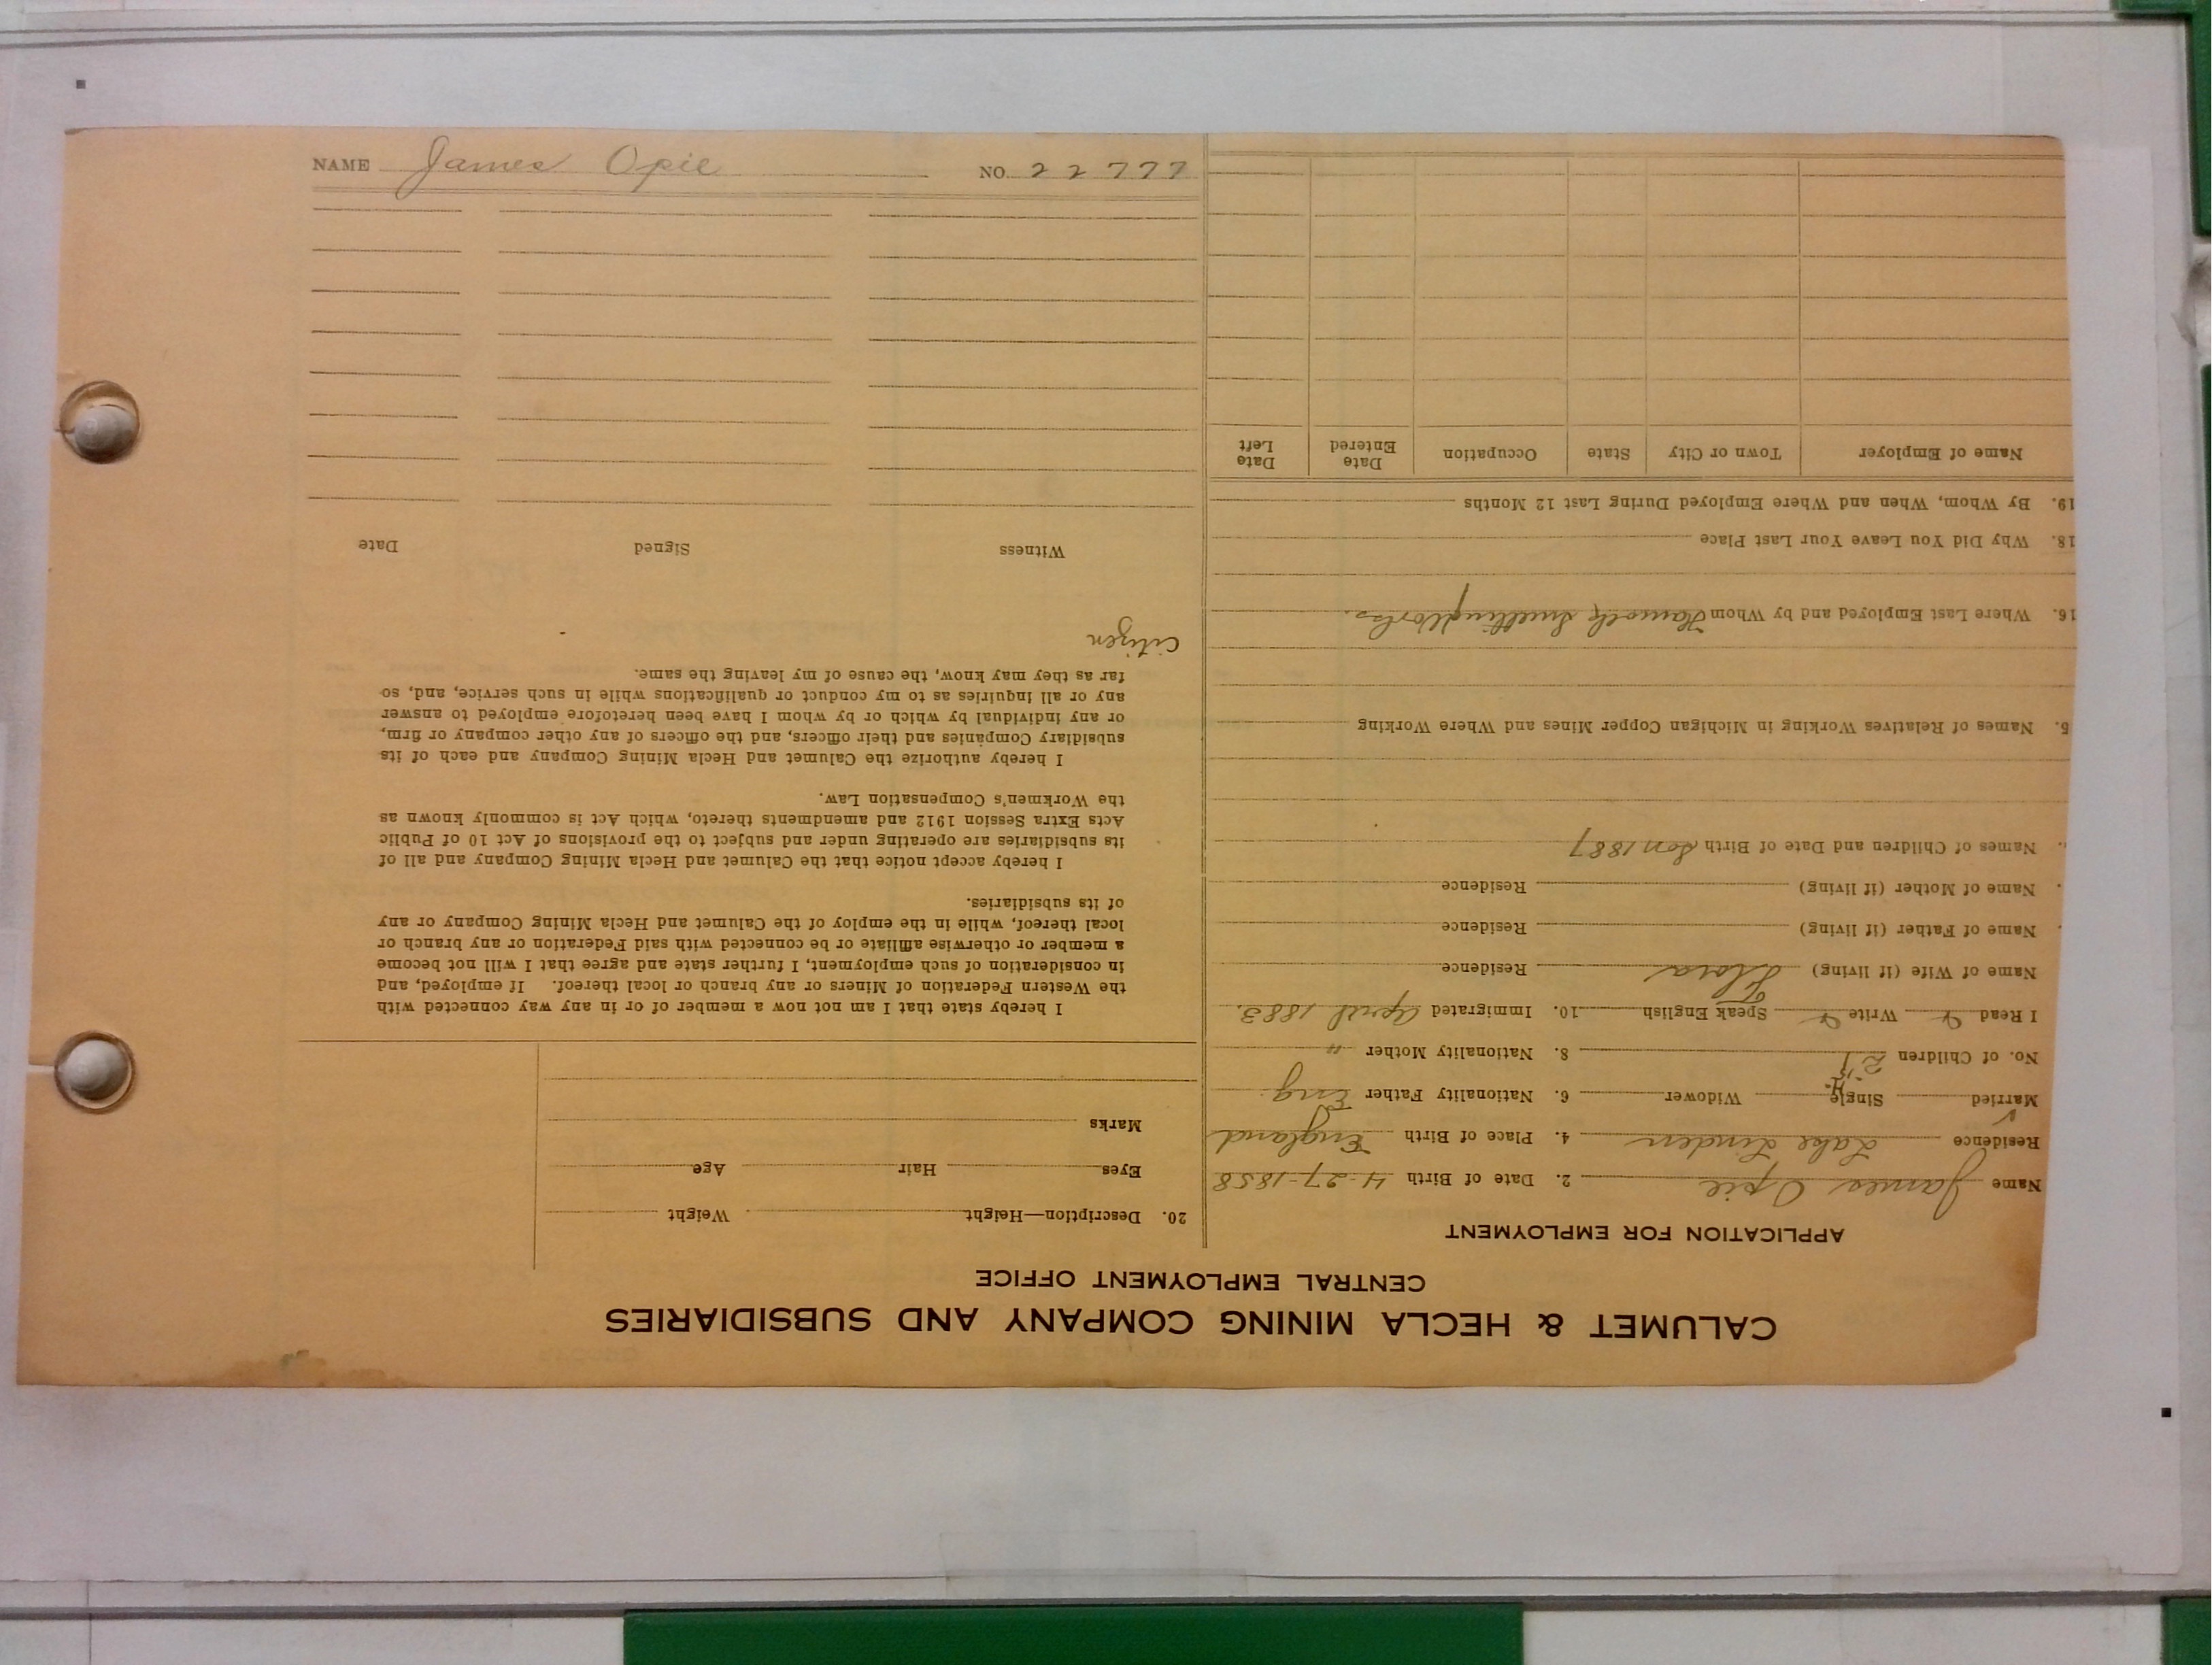 CALUMET & HECLA MINING COMPANY AND SUBSIDIARIES
CENTRAL EMPLOYMENT OFFICE
APPLICATION FOR EMPLOYMENT
Name James Opie 2. Date of Birth 4-27-1858
Residence Lake Linden 4. Place of Birth England
Married Single Widower 6. Nationality Father Eng.
No. of Children 8. Nationality Mother "
I Read Write Speak English 10. Immigrated April 1883.
Name of Wife (if living) Flora Residence
Name of Father (if living) Residence
Name of Mother (if living) Residence
Names of Children and Date of Birth Son 1887
5. Names of Relatives Working in Michigan Copper Mines and Where Working
16. Where Last Employed and by Whom Hancock Smelting Works.
18. Why Did You Leave Your Last Place
19. By Whom, When and Where Employed During Last 12 Months
Name of Employer Town or City State Occupation Date Entered Date Left
20. Description—Height Weight
Eyes Hair Age
Marks
I hereby state that I am not now a member of or in any way connected with
the Western Federation of Miners or any branch or local thereof. If employed, and
in consideration of such employment, I further state and agree that I will not become
a member or otherwise affiliate or be connected with said Federation or any branch or
local thereof, while in the employ of the Calumet and Hecla Mining Company or any
of its subsidiaries.
I hereby accept notice that the Calumet and Hecla Mining Company and all of
its subsidiaries are operating under and subject to the provisions of Act 10 of Public
Acts Extra Session 1912 and amendments thereto, which Act is commonly known as
the Workmen's Compensation Law.
I hereby authorize the Calumet and Hecla Mining Company and each of its
subsidiary Companies and their officers, and the officers of any other company or firm,
or any individual by which or by whom I have been heretofore employed to answer
any or all inquiries as to my conduct or qualifications while in such service, and, so
far as they may know, the cause of my leaving the same.
Citizen
Witness Signed Date
NAME James Opie NO. 22777